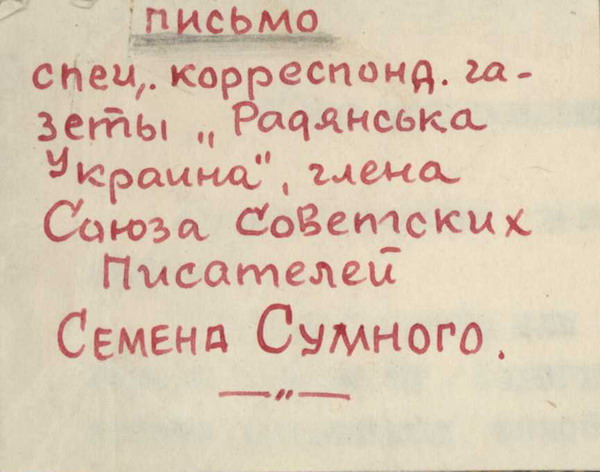 письмо
спец. корреспонд. га-
зеты „Радянська
Украина", члена
Союза Советских
Писателей
Семена Сумного.
—„—